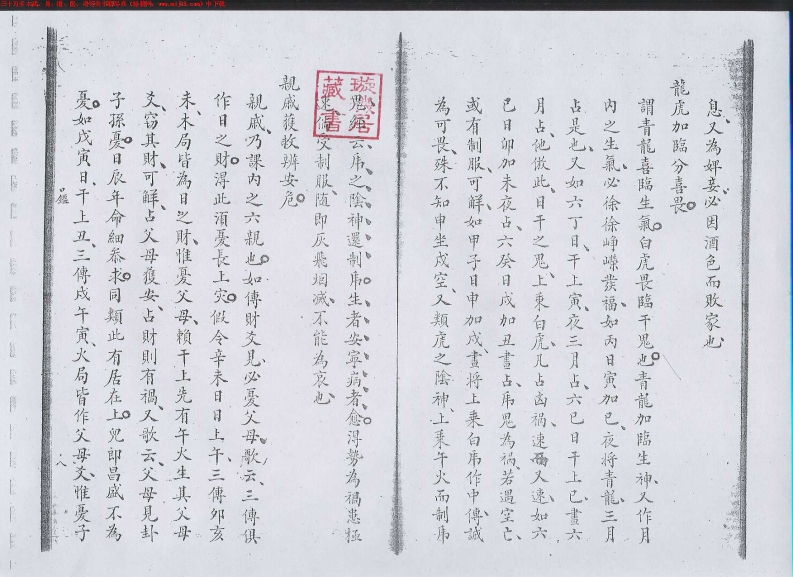 息、又為婢妾必因酒色而敗家也
龍虎加臨分喜畏
謂青龍喜臨生氣白虎畏臨干鬼也青龍加臨生神又作月
內之生氣必徐徐崢嶸發福如丙日寅加巳夜將青龍三月
占是也又如六丁日干上寅夜三月占六巳日干上巳晝六
月占他倣此日干之鬼上乘白虎凡占凶禍速又速如六
巳日卯加未夜占六癸日戌加丑晝占虎鬼為禍若遇空亡
或有制服可解如甲子日申加戌晝將上乘白虎作中傳誠
為可畏殊不知申坐戌空又類虎之陰神上乘午火而制虎
鬼經云虎之陰神還制虎生者安寧病者愈得勢為禍惠極
速倘受制服隨即灰飛烟滅不能為哀也
親戚獲救辨安危
親戚乃課內之六親也如傳財爻見必憂父母歌云三傳俱
作日之財得此須憂長上灾假令辛未日日上午三傳卯亥
未木局皆為日之財惟憂父母賴干上先有午火生其父母
爻竊其財可解占父母獲安占財則有禍又歌云父母見卦
子孫憂日辰年命細叅求同類此有居在上兒郎昌盛不為
憂如戊寅日干上丑三傳戌午寅火局皆作父母爻惟憂子
璇璣居藏書
八